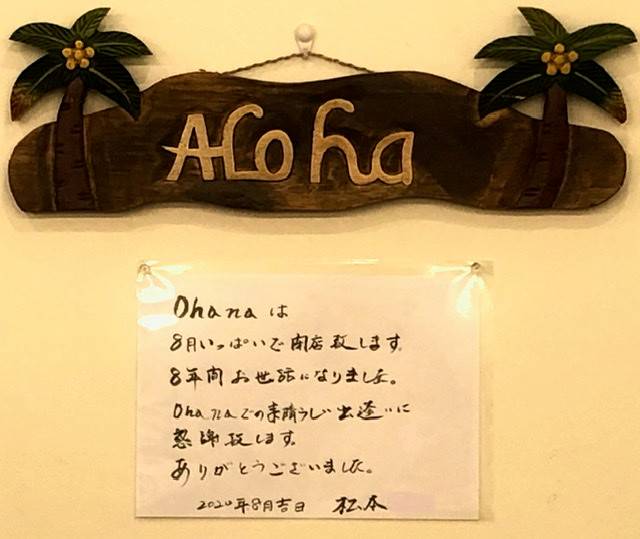 ALoha
Ohana は
8月いっぱいで閉店致します。
8年間お世話になりました。
Ohanaでの素晴らしい出逢いに
感謝致します。
ありがとうございました。
2020年8月吉日 松本